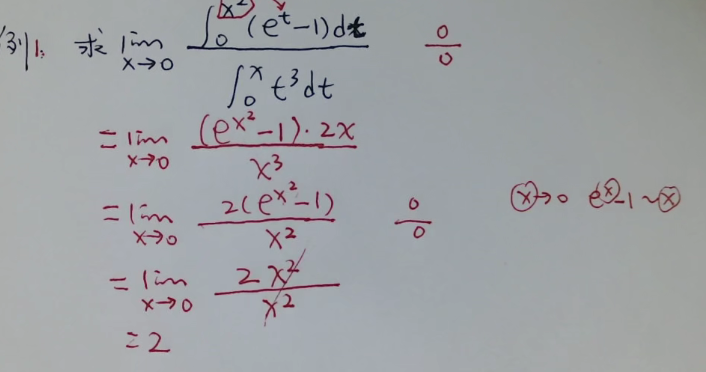 例1. 求 lim x→0 ∫₀^(x²) (e^t−1)dt / ∫₀^x t³dt  0/0
= lim x→0 (e^(x²)−1)·2x / x³
= lim x→0 2(e^(x²)−1) / x²  0/0  x→0 e^x−1~x
= lim x→0 2x² / x²
= 2